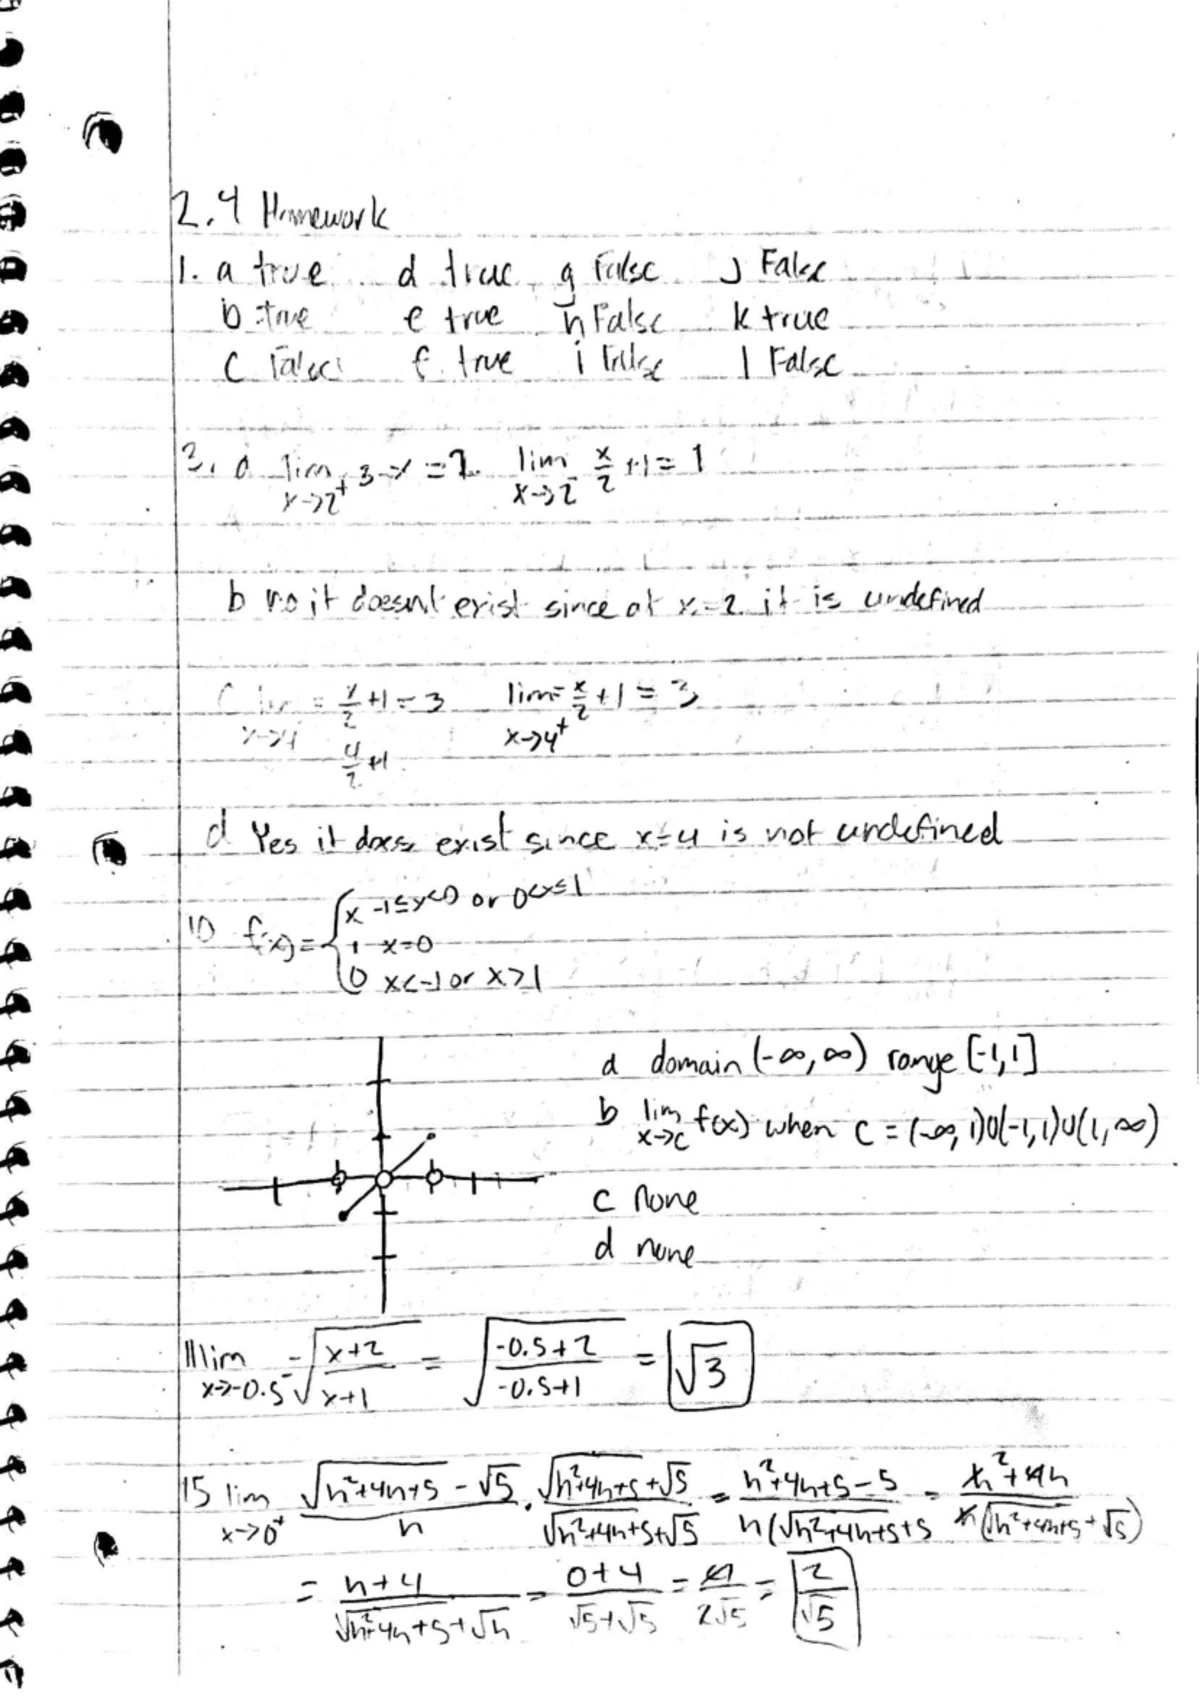 2.4 Homework
1. a true d true g False J False
b true e true h False k true
c False f. true i False l False
3. a lim x→2⁺ 3-x = 2 lim x→2⁻ x/2 +1 = 1
b no it doesnt exist since at x=2 it is undefined
c lim x→4⁻ = x/2 +1 = 3 lim x→4⁺ = x/2 +1 = 3
4/2 +1
d Yes it does exist since x=4 is not undefined
10 f(x) = { x -1≤x<0 or 0<x≤1
1 x=0
0 x<-1 or x>1
a domain (-∞, ∞) range [-1, 1]
b lim x→c f(x) when c = (-∞, 1)∪(-1, 1)∪(1, ∞)
c none
d none
11 lim x→-0.5⁻ √((x+2)/(x+1)) = √((-0.5+2)/(-0.5+1)) = √3
15 lim x→0⁺ (√(h²+4h+5) - √5)/h · (√(h²+4h+5) + √5)/(√(h²+4h+5) + √5) = (h²+4h+5-5)/(h(√(h²+4h+5)+5 = (h²+4h)/(h(√(h²+4h+5) + √5)
= (h+4)/(√(h²+4h+5) + √h) = (0+4)/(√5+√5) = 4/(2√5) = 2/√5